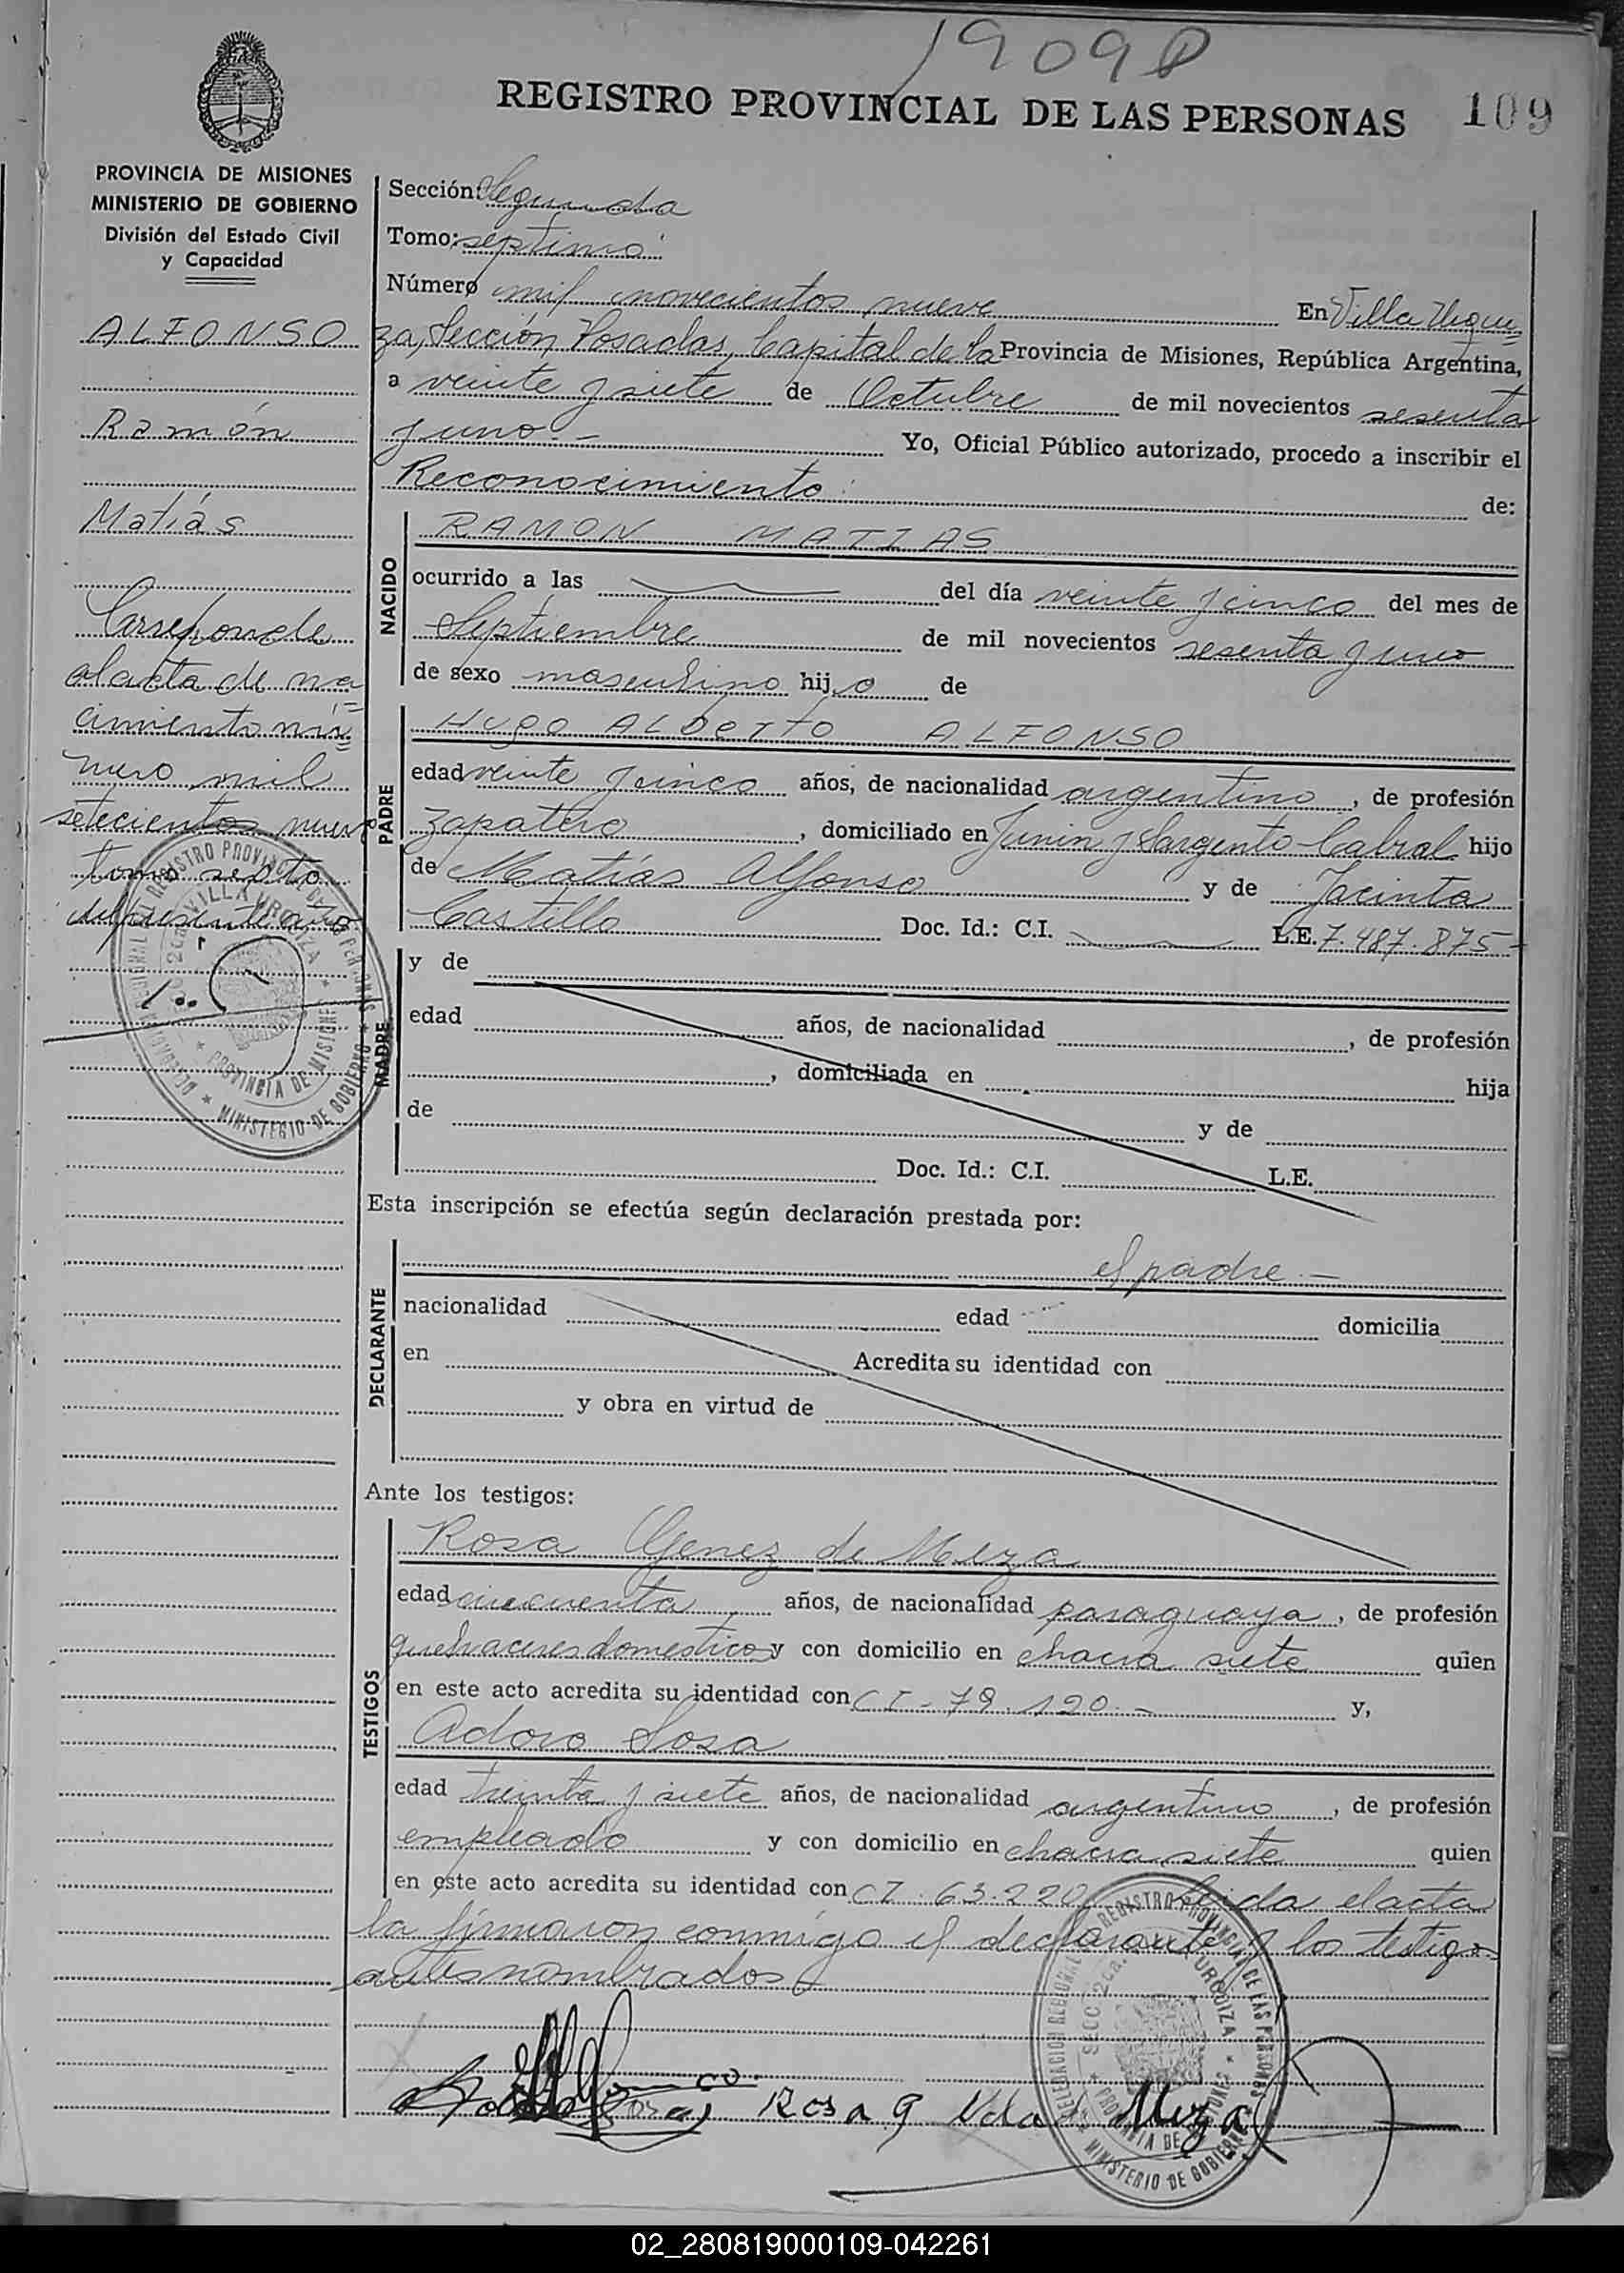 1909
REGISTRO PROVINCIAL DE LAS PERSONAS 109
PROVINCIA DE MISIONES
MINISTERIO DE GOBIERNO
División del Estado Civil
y Capacidad
ALFONSO
Ramón
Matiás
Corresponde
al acta de na
cimiento nú
mero mil
setecientos nueve
tomo septo
del presente año
Sección: Segunda
Tomo: septimo
Número mil novecientos nueve En Villa Urqui
za, Sección, Posadas, Capital de la Provincia de Misiones, República Argentina,
a veinte y siete de Octubre de mil novecientos sesenta
y uno.- Yo, Oficial Público autorizado, procedo a inscribir el
Reconocimiento de:
NACIDO
RAMON MATIAS
ocurrido a las del día veinte y cinco del mes de
Septiembre de mil novecientos sesenta y uno
de sexo masculino hijo de
PADRE
Hugo ALbeTTo ALFONSO
edad veinte y cinco años, de nacionalidad argentino, de profesión
zapatero, domiciliado en Junin y Sargento Cabral hijo
de Matías Alfonso y de Jacinta
Castillo Doc. Id.: C.I. L.E. 7.487.875-
MADRE
y de
edad años, de nacionalidad , de profesión
, domiciliada en hija
de y de
Doc. Id.: C.I. L.E.
Esta inscripción se efectúa según declaración prestada por:
DECLARANTE
el padre.-
nacionalidad edad domicilia
en Acredita su identidad con
y obra en virtud de
Ante los testigos:
TESTIGOS
Rosa Genez de Meza
edad cincuenta años, de nacionalidad paraguaya, de profesión
quehaceres domesticos y con domicilio en chacra siete quien
en este acto acredita su identidad con CI - 79.120.- y,
Adoro Sosa
edad treinta y siete años, de nacionalidad argentino, de profesión
empleado y con domicilio en chacra siete quien
en este acto acredita su identidad con CI. 63.220 Leida el acta
la firmaron conmigo el declarante y los testigos
antes nombrados
Rosa G Vda Meza
02_280819000109-042261